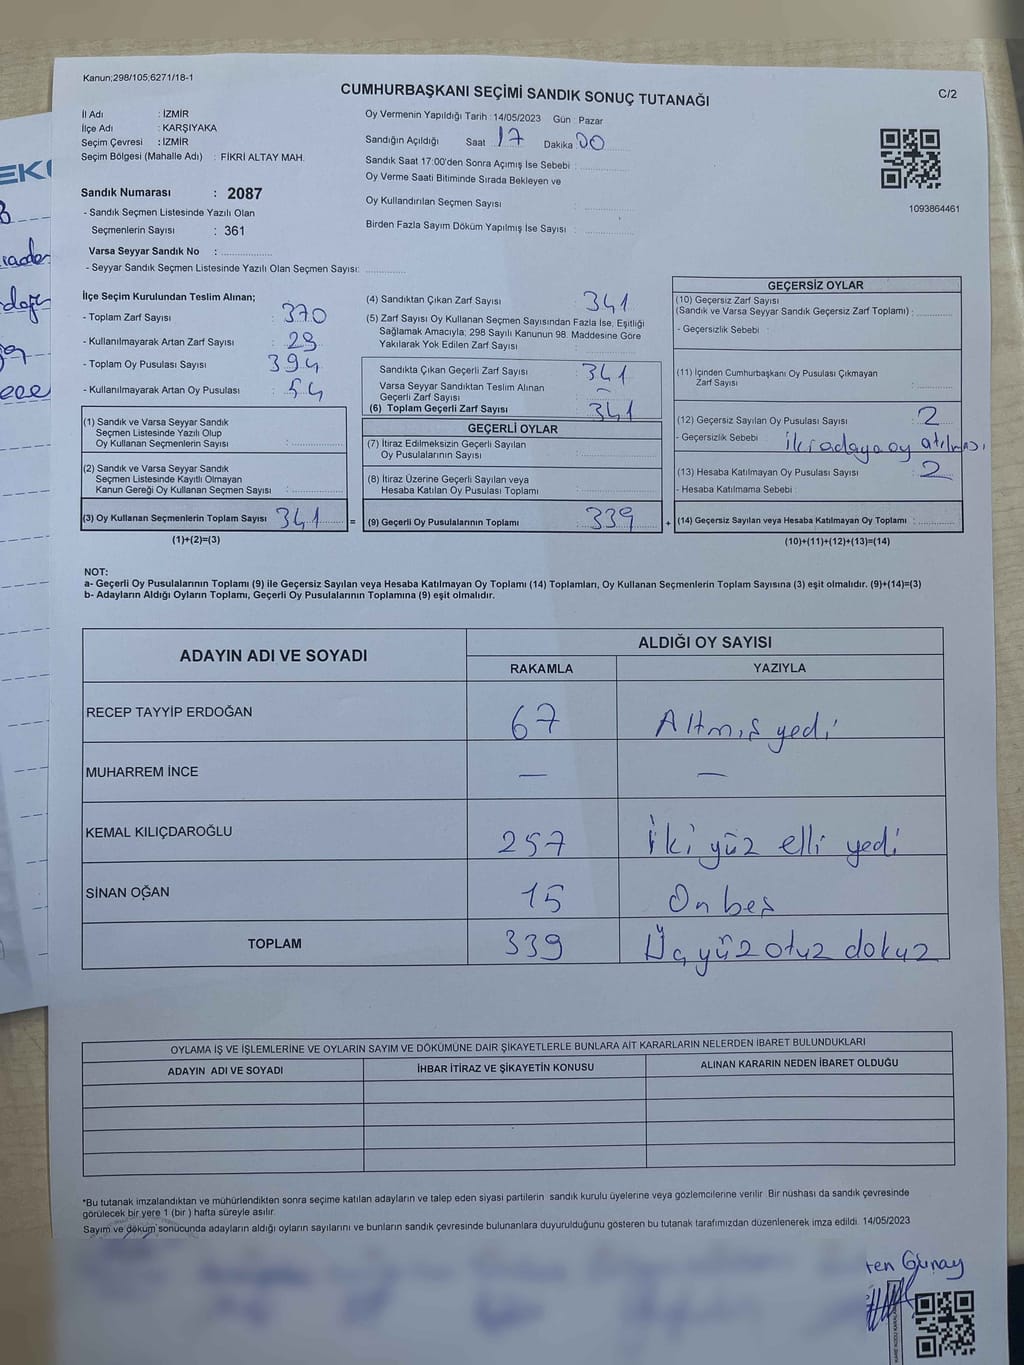 Kanun;298/105;6271/18-1
CUMHURBAŞKANI SEÇİMİ SANDIK SONUÇ TUTANAĞI
C/2
İl Adı : İZMİR
İlçe Adı : KARŞIYAKA
Seçim Çevresi : İZMİR
Seçim Bölgesi (Mahalle Adı) : FİKRİ ALTAY MAH.
Sandık Numarası : 2087
- Sandık Seçmen Listesinde Yazılı Olan
Seçmenlerin Sayısı : 361
Varsa Seyyar Sandık No :
- Seyyar Sandık Seçmen Listesinde Yazılı Olan Seçmen Sayısı:
Oy Vermenin Yapıldığı Tarih : 14/05/2023 Gün : Pazar
Sandığın Açıldığı Saat 17 Dakika 00
Sandık Saat 17:00'den Sonra Açımış İse Sebebi :
Oy Verme Saati Bitiminde Sırada Bekleyen ve
Oy Kullandırılan Seçmen Sayısı :
Birden Fazla Sayım Döküm Yapılmış İse Sayısı :
1093864461
İlçe Seçim Kurulundan Teslim Alınan;
- Toplam Zarf Sayısı : 370
- Kullanılmayarak Artan Zarf Sayısı : 29
- Toplam Oy Pusulası Sayısı : 394
- Kullanılmayarak Artan Oy Pusulası : 54
(1) Sandık ve Varsa Seyyar Sandık
Seçmen Listesinde Yazılı Olup
Oy Kullanan Seçmenlerin Sayısı :
(2) Sandık ve Varsa Seyyar Sandık
Seçmen Listesinde Kayıtlı Olmayan
Kanun Gereği Oy Kullanan Seçmen Sayısı :
(3) Oy Kullanan Seçmenlerin Toplam Sayısı : 341 =
(1)+(2)=(3)
(4) Sandıktan Çıkan Zarf Sayısı : 341
(5) Zarf Sayısı Oy Kullanan Seçmen Sayısından Fazla İse, Eşitliği
Sağlamak Amacıyla; 298 Sayılı Kanunun 98. Maddesine Göre
Yakılarak Yok Edilen Zarf Sayısı :
Sandıkta Çıkan Geçerli Zarf Sayısı : 341
Varsa Seyyar Sandıktan Teslim Alınan
Geçerli Zarf Sayısı : –
(6) Toplam Geçerli Zarf Sayısı : 341
GEÇERLİ OYLAR
(7) İtiraz Edilmeksizin Geçerli Sayılan
Oy Pusulalarının Sayısı :
(8) İtiraz Üzerine Geçerli Sayılan veya
Hesaba Katılan Oy Pusulası Toplamı :
(9) Geçerli Oy Pusulalarının Toplamı : 339 +
GEÇERSİZ OYLAR
(10) Geçersiz Zarf Sayısı
(Sandık ve Varsa Seyyar Sandık Geçersiz Zarf Toplamı) :
- Geçersizlik Sebebi :
(11) İçinden Cumhurbaşkanı Oy Pusulası Çıkmayan
Zarf Sayısı :
(12) Geçersiz Sayılan Oy Pusulası Sayısı : 2
- Geçersizlik Sebebi : iki adaya oy atılması
(13) Hesaba Katılmayan Oy Pusulası Sayısı : 2
- Hesaba Katılmama Sebebi :
(14) Geçersiz Sayılan veya Hesaba Katılmayan Oy Toplamı :
(10)+(11)+(12)+(13)=(14)
NOT:
a- Geçerli Oy Pusulalarının Toplamı (9) ile Geçersiz Sayılan veya Hesaba Katılmayan Oy Toplamı (14) Toplamları, Oy Kullanan Seçmenlerin Toplam Sayısına (3) eşit olmalıdır. (9)+(14)=(3)
b- Adayların Aldığı Oyların Toplamı, Geçerli Oy Pusulalarının Toplamına (9) eşit olmalıdır.
ADAYIN ADI VE SOYADI
ALDIĞI OY SAYISI
RAKAMLA YAZIYLA
RECEP TAYYİP ERDOĞAN 67 Altmış yedi
MUHARREM İNCE — —
KEMAL KILIÇDAROĞLU 257 İki yüz elli yedi
SİNAN OĞAN 15 On beş
TOPLAM 339 Üç yüz otuz dokuz
OYLAMA İŞ VE İŞLEMLERİNE VE OYLARIN SAYIM VE DÖKÜMÜNE DAİR ŞİKAYETLERLE BUNLARA AİT KARARLARIN NELERDEN İBARET BULUNDUKLARI
ADAYIN ADI VE SOYADI İHBAR İTİRAZ VE ŞİKAYETİN KONUSU ALINAN KARARIN NEDEN İBARET OLDUĞU
*Bu tutanak imzalandıktan ve mühürlendikten sonra seçime katılan adayların ve talep eden siyasi partilerin sandık kurulu üyelerine veya gözlemcilerine verilir. Bir nüshası da sandık çevresinde
görülecek bir yere 1 (bir ) hafta süreyle asılır.
Sayım ve döküm sonucunda adayların aldığı oyların sayılarını ve bunların sandık çevresinde bulunanlara duyurulduğunu gösteren bu tutanak tarafımızdan düzenlenerek imza edildi. 14/05/2023
ten Günay